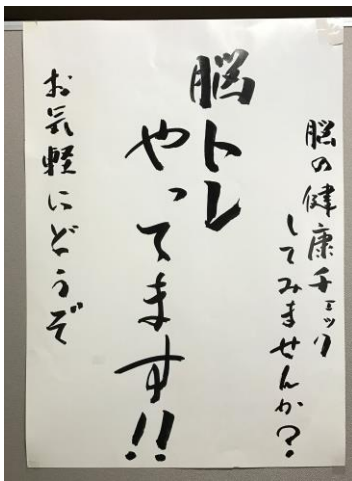 脳の健康チェック
してみませんか?
脳トレ
やってます!!
お気軽にどうぞ